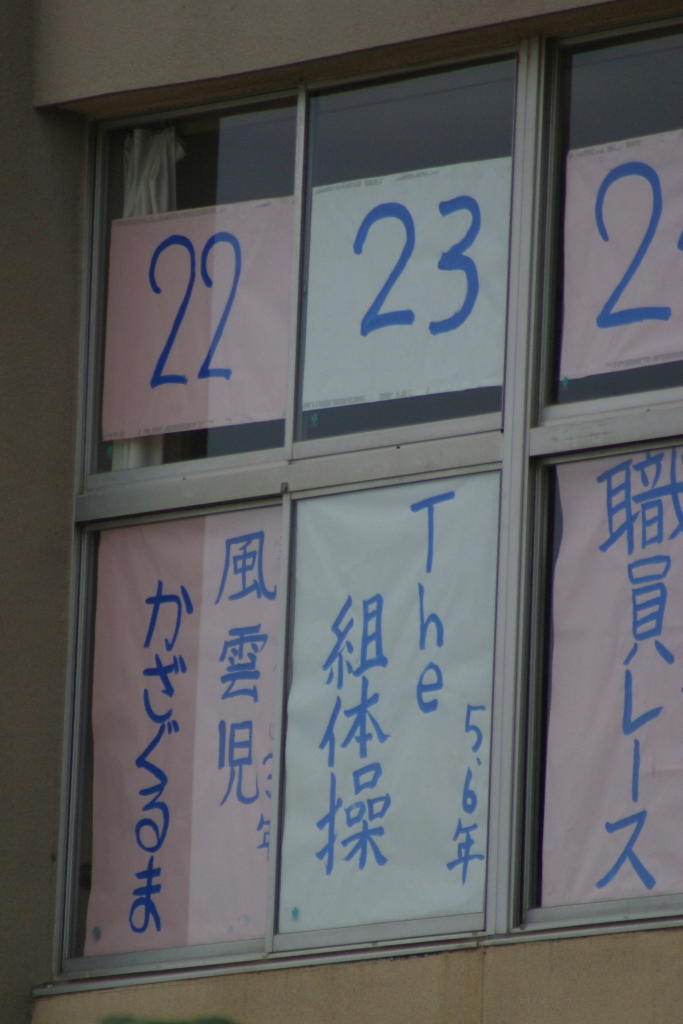 22
23
2
風雲児
かざぐるま
年
The
組体操
5.6年
職員レース